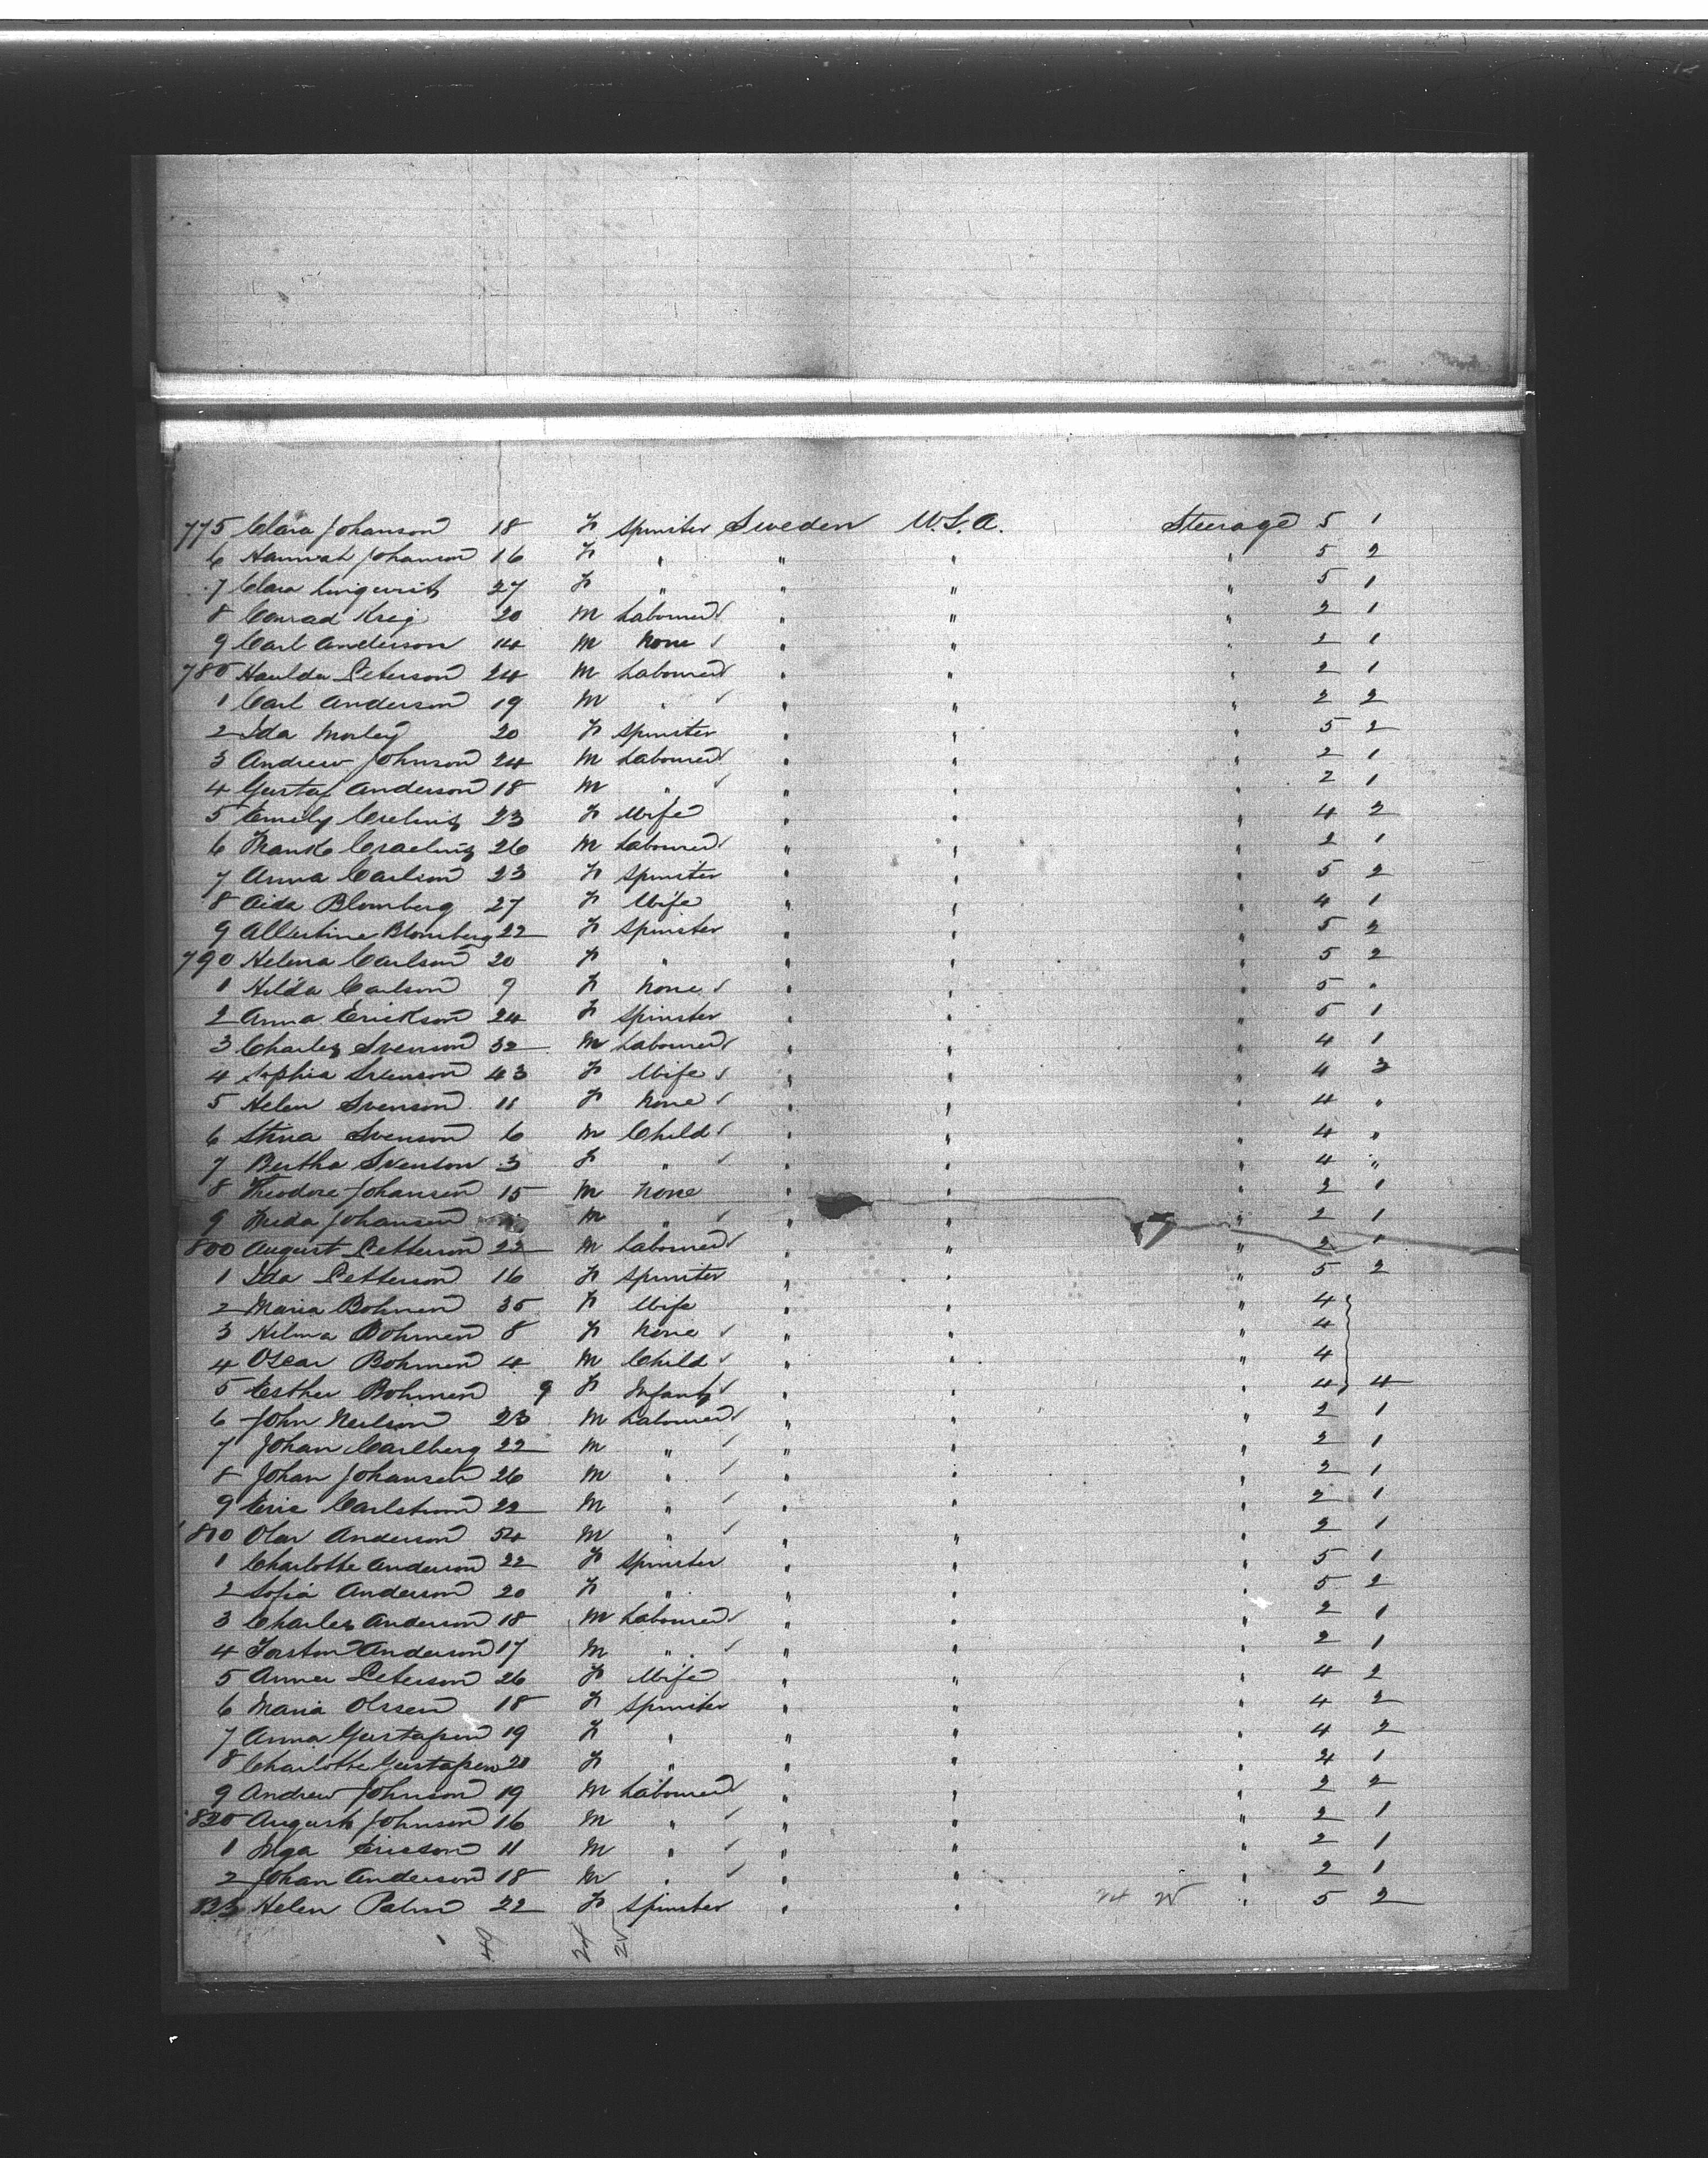 775 Clara Johanson 18 F Spinster Sweden U.S.A. Steerage 5 1
6 Hannah Johanson 16 F " " " " 5 2
7 Clara Linqvist 27 F " " " " 5 1
8 Conrad Krig 20 M Labourer " " " 2 1
9 Carl Anderson 14 M None " " " 2 1
780 Haulda Peterson 24 M Labourer " " " 2 1
1 Carl Anderson 19 M " " " " 2 2
2 Ida Morley 20 F Spinster " " " 5 2
3 Andrew Johnson 24 M Labourer " " " 2 1
4 Gustaf Anderson 18 M " " " " 2 1
5 Emily 23 F Wife " " " 4 2
6 Frank 26 M Labourer " " " 2 1
7 Anna Carlson 23 F Spinster " " " 5 2
8 Aida Blomberg 27 F Wife " " " 4 1
9 Albertina Blomberg 22 F Spinster " " " 5 2
790 Helena Carlson 20 F " " " " 5 2
1 Hilda Carlson 9 F None " " " 5 "
2 Anna Erickson 24 F Spinster " " " 5 1
3 Charles Svenson 32 M Labourer " " " 4 1
4 Sophia Svenson 43 F Wife " " " 4 3
5 Helen Svenson 11 F None " " " 4 "
6 Stina Svenson 6 M Child " " " 4 "
7 Bertha Svenson 3 F " " " " 4 "
8 Theodore Johansen 15 M None " " " 2 1
9 Johansen M " " " " 2 1
800 August Petterson 22 M Labourer " " " 2 1
1 Ida Petterson 16 F Spinster " " " 5 2
2 Maria Bohmen 35 F Wife " " " 4
3 Hilma Bohmen 8 F None " " " 4
4 Oscar Bohmen 4 M Child " " " 4
5 Esther Bohmen 9 F Infant " " " 4 4
6 John Neilson 23 M Labourer " " " 2 1
7 Johan Carlberg 22 M " " " " 2 1
8 Johan Johansen 26 M " " " " 2 1
9 Eric Carlstrom 22 M " " " " 2 1
810 Olar Anderson 54 M " " " " 2 1
1 Charlotte Anderson 22 F Spinster " " " 5 1
2 Sofia Anderson 20 F " " " " 5 2
3 Charles Anderson 18 M Labourer " " " 2 1
4 Torston Anderson 17 M " " " " 2 1
5 Anna Peterson 26 F Wife " " " 4 2
6 Maria Olssen 18 F Spinster " " " 4 2
7 Anna Gustafsen 19 F " " " " 4 2
8 Charlotte Gustafsen 20 F " " " " 4 1
9 Andrew Johnson 19 M Labourer " " " 2 2
820 August Johnson 16 M " " " " 2 1
1 Inga Ericson 11 M " " " " 2 1
2 Johan Anderson 18 M " " " " 2 1
823 Helen Palm 22 F Spinster " " 24 25 " 5 2
49 24 25